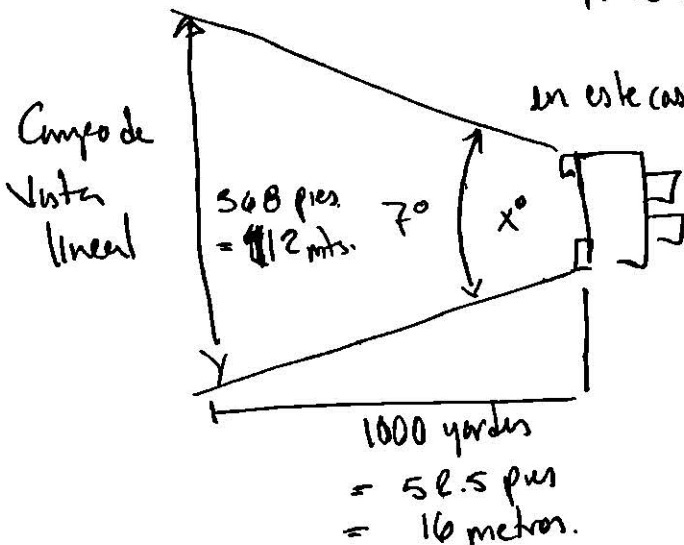 en este cas
Campo de
Vista
lineal
368 pies.
= 112 mts.
7°
x°
1000 yardas
= 52.5 pies
= 16 metros.